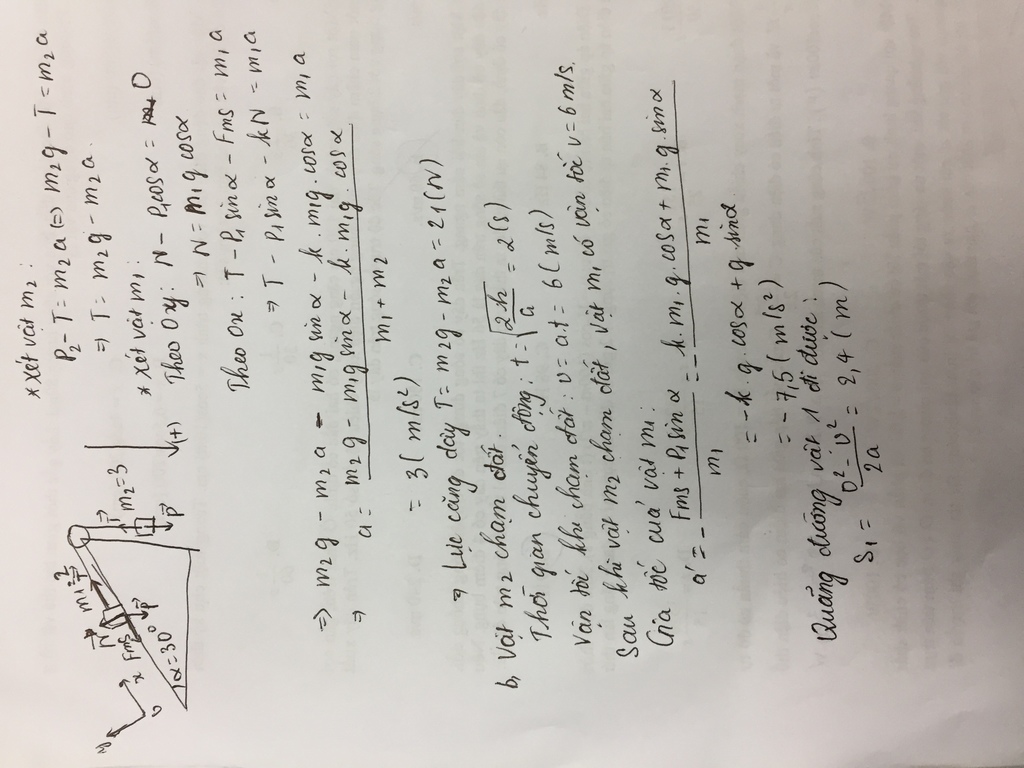 * Xét vật m2:
P2 - T = m2 a (=) m2 g - T = m2 a
=> T = m2 g - m2 a.
* xét vật m1:
Theo Oy: N - P1 cosα = 0
=> N = m1 g cosα
Theo Ox: T - P1 sinα - Fms = m1 a
=> T - P1 sinα - kN = m1 a
y
x
O
N
Fms
P
α = 30°
T
m2 = 3
P
(+)
=> m2 g - m2 a - m1 g sinα - k . m1 g . cosα = m1 a
=> a = m2 g - m1 g sinα - k . m1 g . cosα / m1 + m2
= 3 (m/s²)
=> Lực căng dây T = m2 g - m2 a = 21 (N)
b, Vật m2 chạm đất.
Thời gian chuyển động: t = √2h/a = 2 (s)
Vận tốc khi chạm đất: v = a.t = 6 (m/s)
Sau khi vật m2 chạm đất, vật m1 có vận tốc v = 6 m/s.
Gia tốc của vật m1:
a' = - Fms + P1 sinα / m1 = - k . m1 g . cosα + m1 . g . sinα / m1
= - k . g . cosα + g . sinα
= - 7,5 (m/s²)
Quãng đường vật 1 đi được:
S1 = 0² - v² / 2a = 2,4 (m)